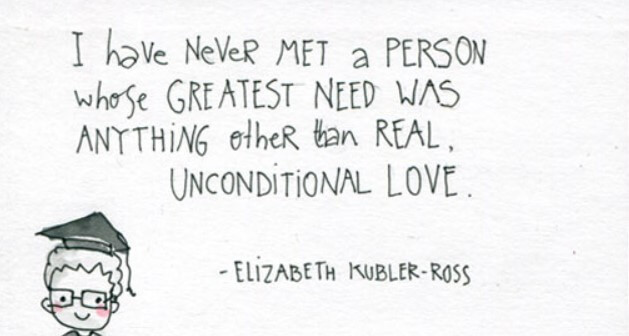 I have NeVeR MET a PERSON
whose GREATEST NEED WAS
ANYTHiNG otheR than REAL,
UNCONDiTiONAL LOVE.
- ELiZABETH KUBLER-ROSS